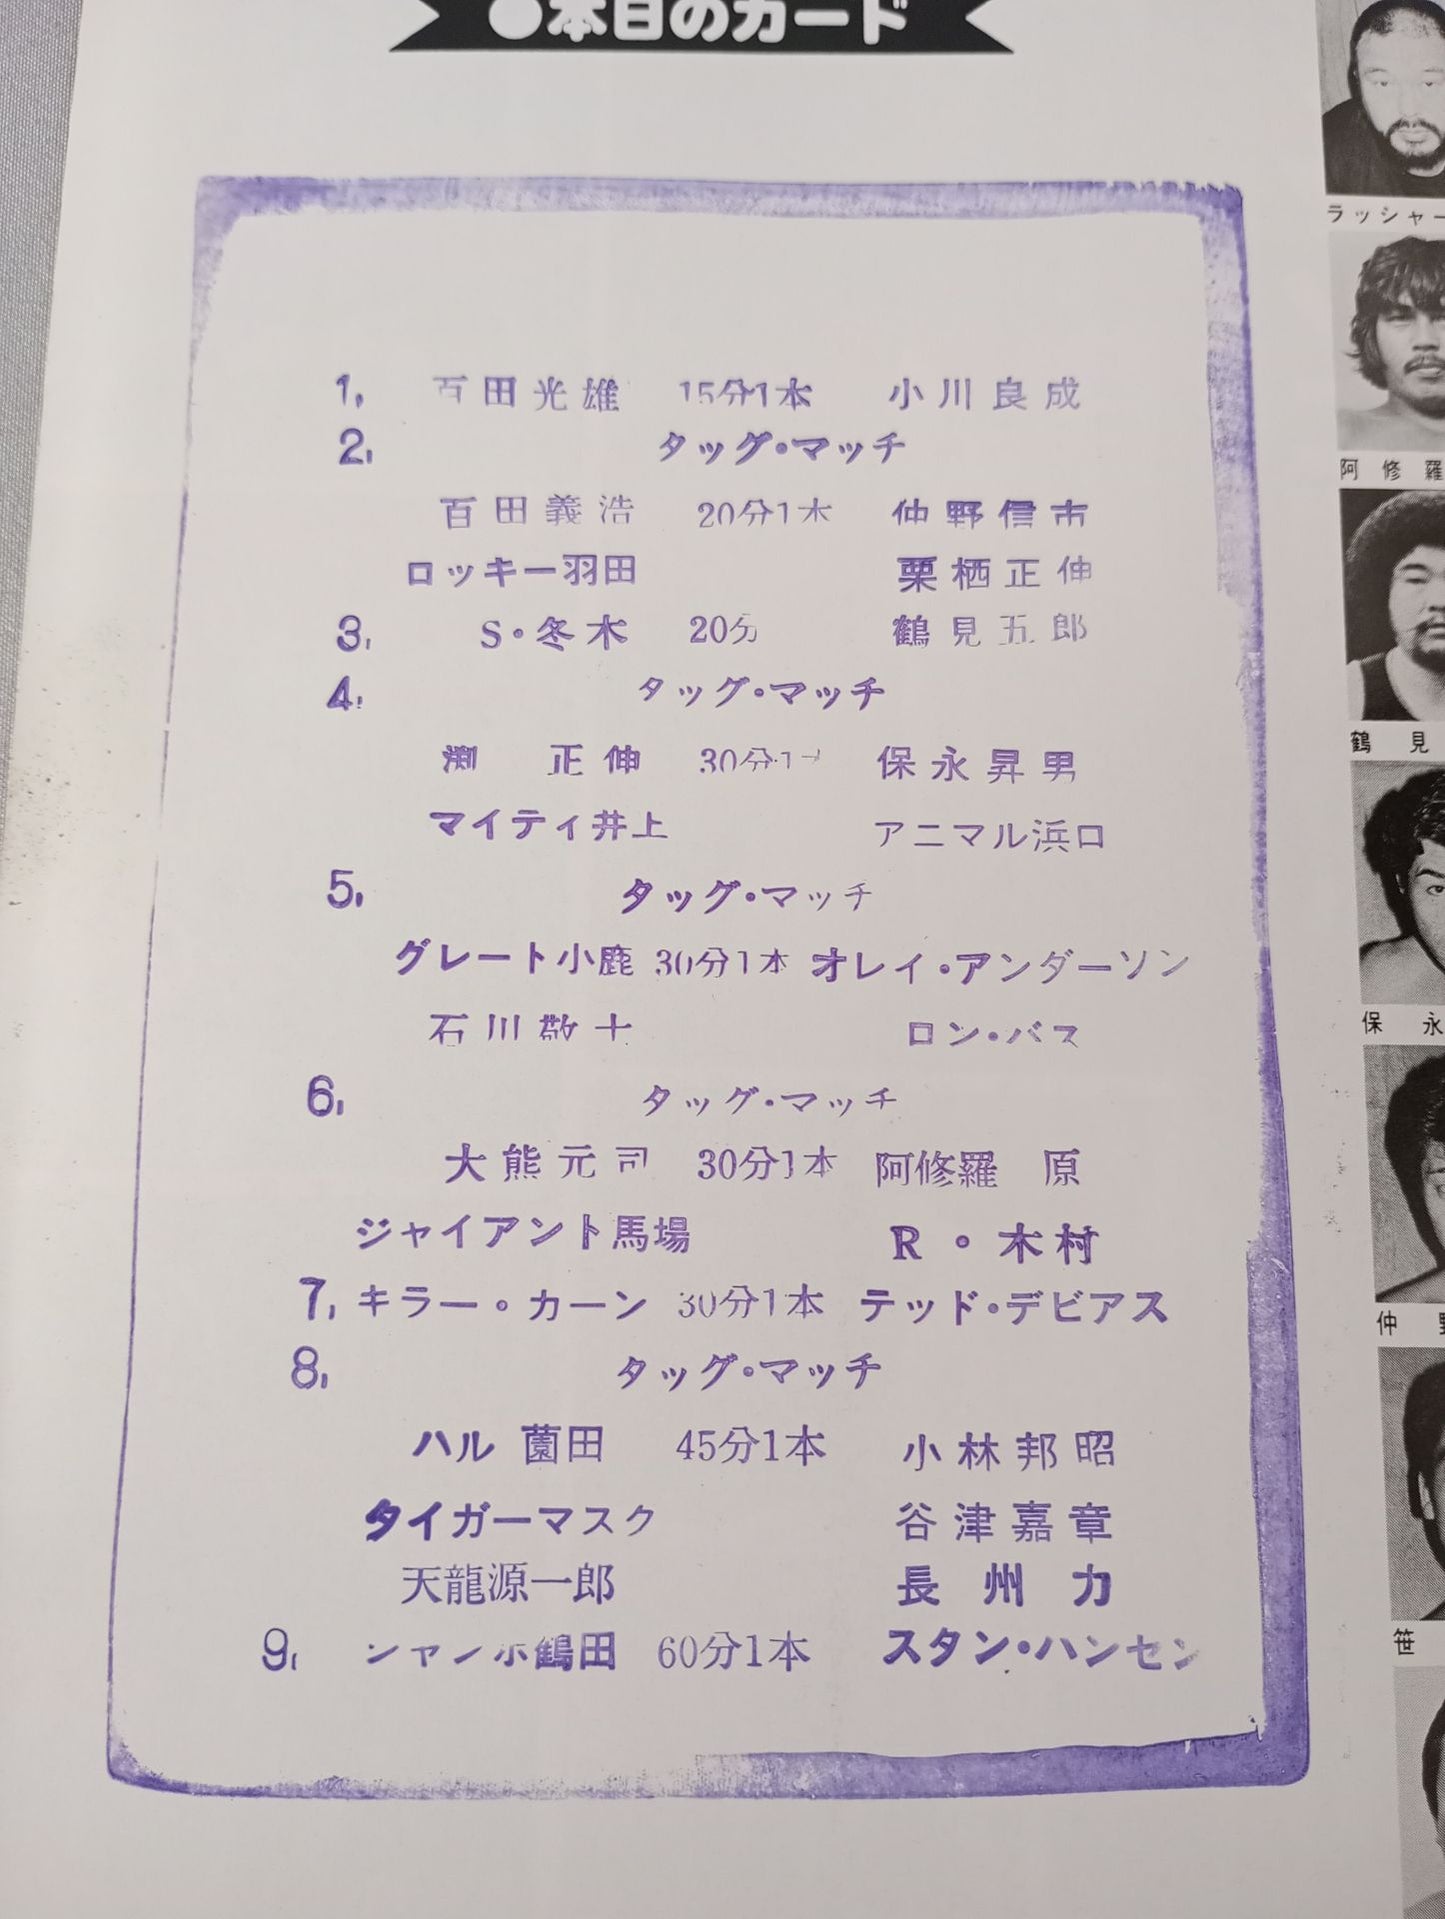 ●本日のカード
1, 百田光雄 15分1本 小川良成
2, タッグ・マッチ
百田義浩 20分1本 仲野信市
ロッキー羽田 栗栖正伸
3, S・冬木 20分 鶴見五郎
4, タッグ・マッチ
渕 正伸 30分1 保永昇男
マイティ井上 アニマル浜口
5, タッグ・マッチ
グレート小鹿 30分1本 オレイ・アンダーソン
石川敬士 ロン・バス
6, タッグ・マッチ
大熊元司 30分1本 阿修羅 原
ジャイアント馬場 R・木村
7, キラー・カーン 30分1本 テッド・デビアス
8, タッグ・マッチ
ハル 薗田 45分1本 小林邦昭
タイガーマスク 谷津嘉章
天龍源一郎 長州力
9, ジャンボ鶴田 60分1本 スタン・ハンセン
ラッシャー
阿修羅
鶴見
保永
仲野
笹